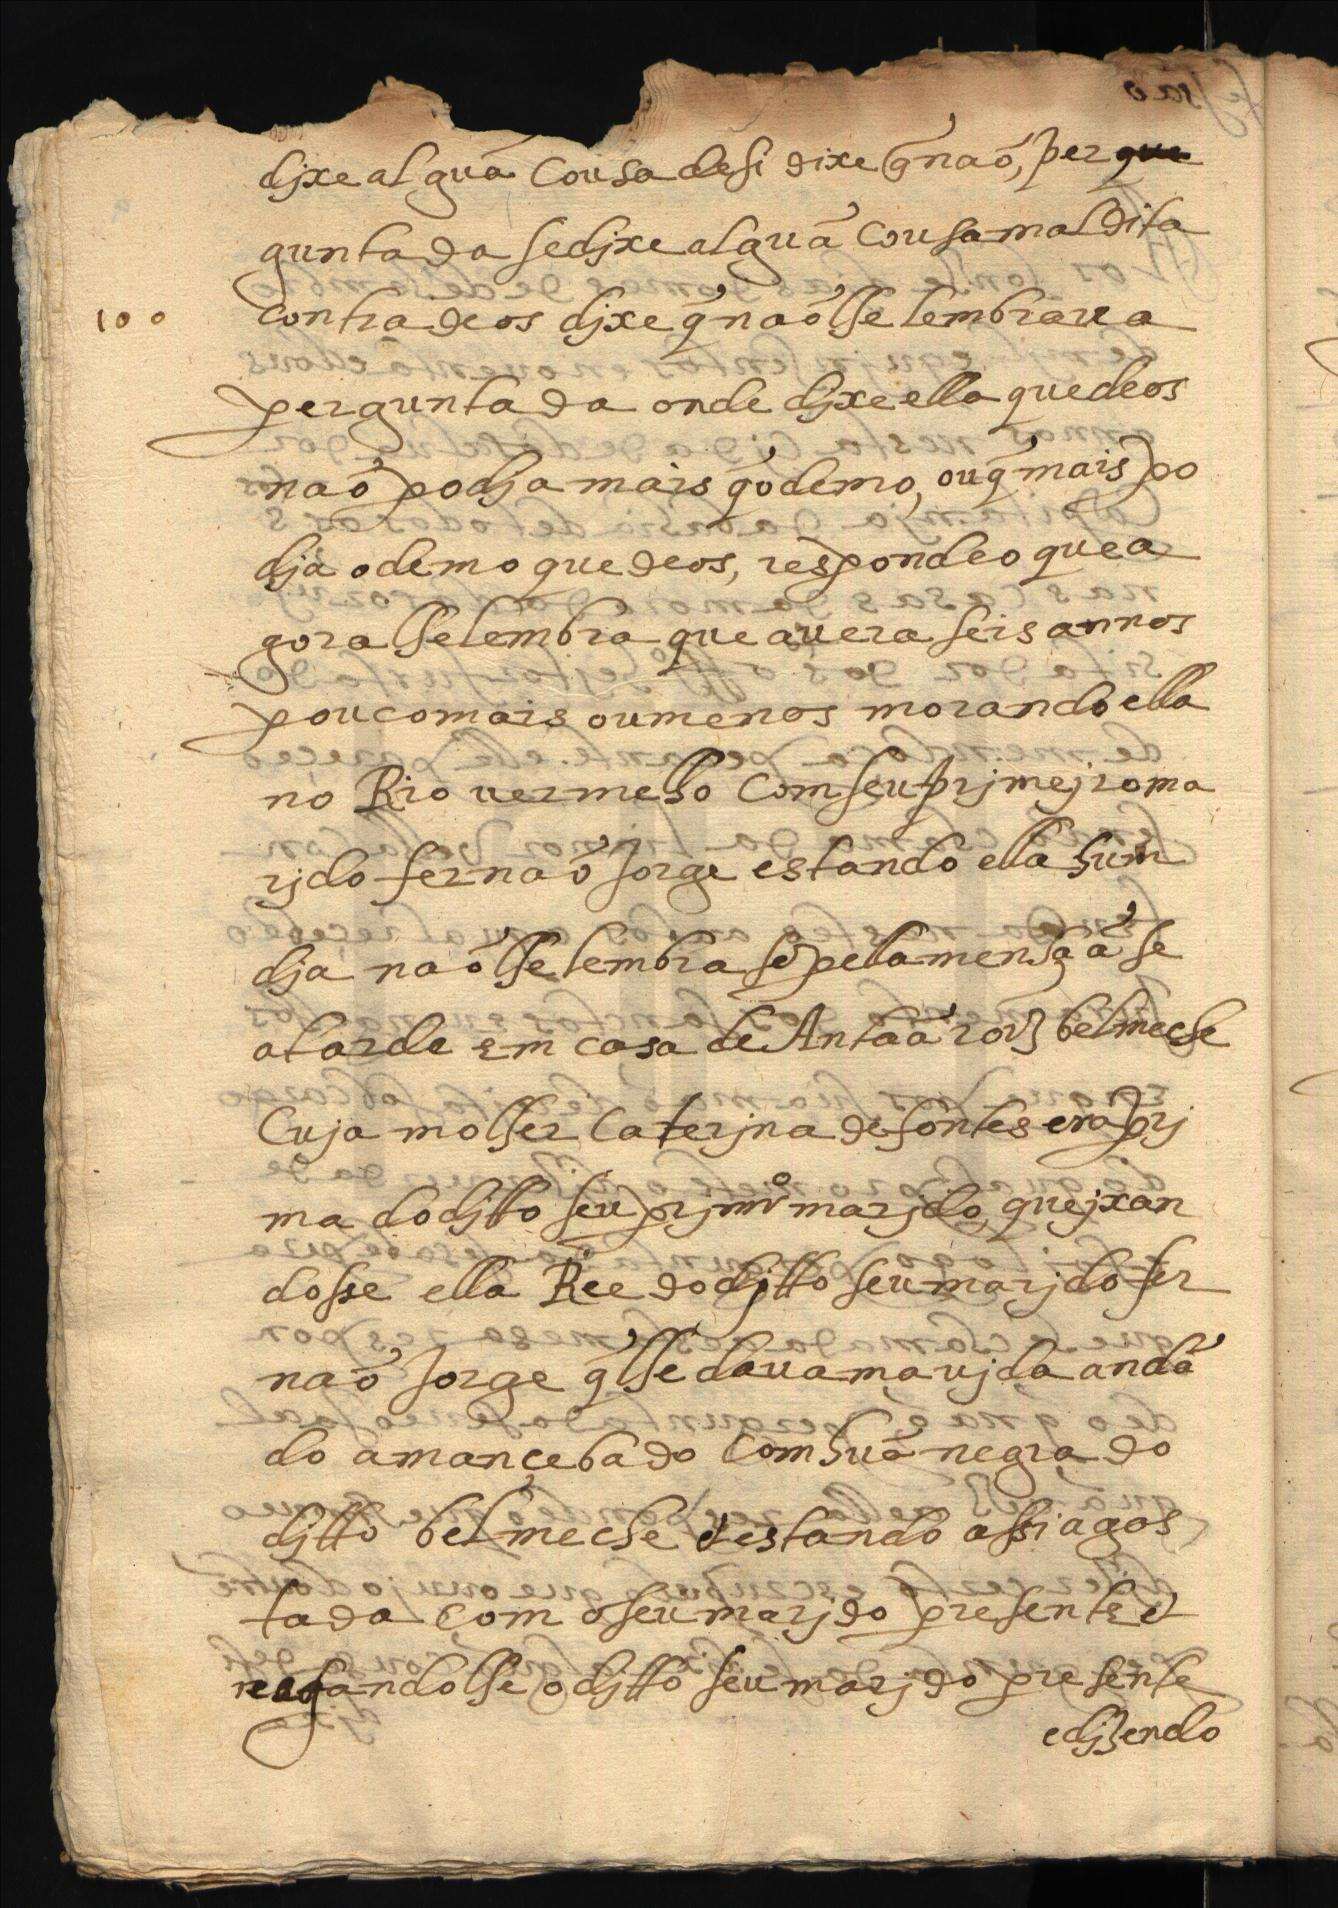 djxe alguã cousa de si dixe q̃ naõ, per que
guntada se djxe alguã cousa mal dita
100 contra deos djxe q̃ naõ lhe lembraua
perguntada onde djxe ella que deos
naõ podja mais q̃ o demo, ou q̃ mais po
djà o demo que deos, respondeo que a
gora lhe lembra que auera seis annos
pouco mais ou menos morando ella
no Rio vermelho com seu prjmejro ma
rjdo fernaõ Jorge estando ella hum
dja naõ lhe lembra se pella menhãa se
a tarde em casa de Antaã roiz belmeche
cuja molher Caterjna de fontes era prj
ma do djtto seu prjmro marjdo, quejxan
dosse ella Ree do djtto seu marjdo fer
naõ Jorge q̃ lhe daua ma vjda andã
do amancebado com huã negra do
djtto belmeche & estando assi agos
tada com o seu marjdo presente &
rindolhe o djtto seu marjdo presente
e djzendo